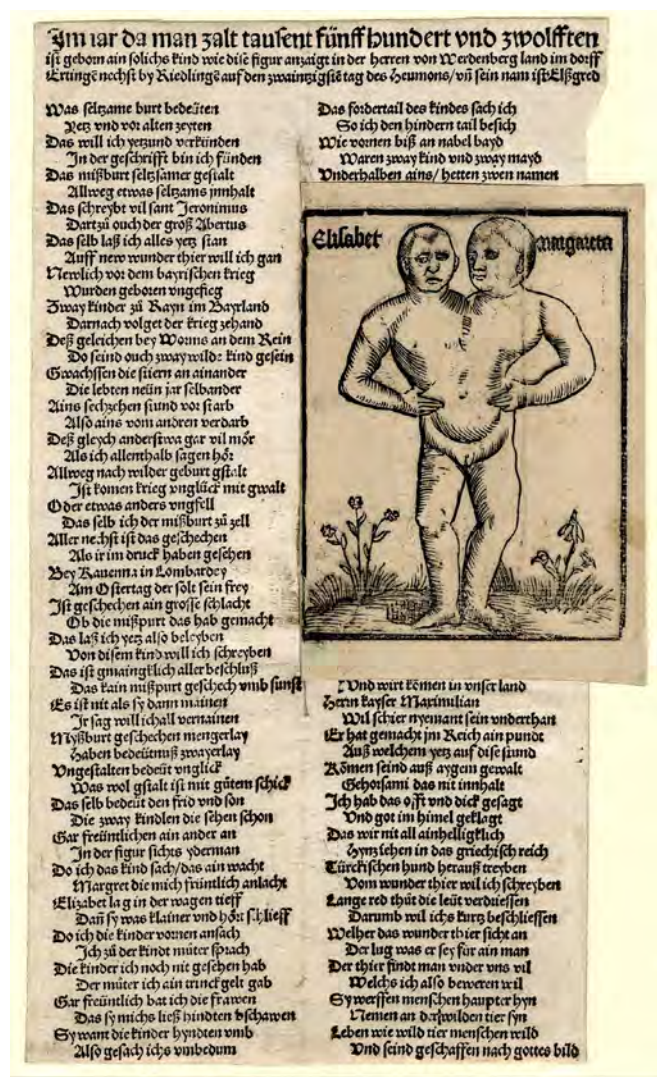 Im iar da man zalt tausent fünff hundert vnd zwolfften
ist geborn ain solichs kind wie dise figur anzaigt in der herren von Werdenberg land im dorff
Ertingē nechst by Riedlingē auf den zwainzigstē tag des Heumons/ vn̄ sein nam ist Elßgred
Was seltzame burt bedeüten
Yetz vnd vor alten zeyten
Das will ich yetzund verkünden
In der geschrifft bin ich fünden
Das mißburt seltzamer gestalt
Allweg etwas seltzams jnnhalt
Das schreybt vil sant Jeronimus
Dartzů ouch der groß Albertus
Das selb laß ich alles yetz stan
Auff new wunder thier will ich gan
Newlich vor dem bayrischen krieg
Wurden geboren vngefieg
Zway kinder zů Rayn im Bayrland
Darnach volget der krieg zehand
Deß geleichen bey Worms an dem Rein
Do seind ouch zway wilde kind gesein
Gwachssen die stiern an ainander
Die lebten neün jar selbander
Ains sechzehen stund vor starb
Also ains vom andren verdarb
Deß gleych anderstwa gar vil mör
Als ich allenthalb sagen hör
Allweg nach wilder geburt gstalt
Ist komen krieg vnglück mit gwalt
Oder etwas anders vngfell
Das selb ich der mißburt zů zell
Aller nechst ist das geschechen
Als ir im druck haben gesehen
Bey Rauenna in Lombardey
Am Ostertag der solt sein frey
Ist geschechen ain grosse schlacht
Ob die mißpurt das hab gemacht
Das laß ich yetz also beleyben
Von disem kind will ich schreyben
Das ist gmaingklich aller beschluß
Das kain mißpurt geschech vmb sunst
Es ist nit als sy dann mainen
Ir sag will ich all vernainen
Myßburt geschechen mengerlay
Haben bedeütnuß zwayerlay
Vngestalten bedeüt vnglick
Was wol gstalt ist mit gůtem schick
Das selb bedeüt den frid vnd son
Die zway kindlen die sehen schon
Gar freüntlichen ain ander an
In der figur sichts yderman
Do ich das kind sach/das ain wacht
Margret die mich früntlich anlacht
Elizabet lag in der wagen tieff
Dañ sy was klainer vnd hört schlieff
Do ich die kinder vornen ansach
Ich zů der kindt můter sprach
Die kinder ich noch nit gesehen hab
Der můter ich ain trinckgelt gab
Gar freüntlich bat ich die frawen
Das sy michs ließ hindten bschawen
Sy want die kinder hyndten vmb
Also gesach ichs vmbedum
Das fordertail des kindes sach ich
So ich den hindern tail besich
Wie vornen biß an nabel bayd
Waren zway kind vnd zway mayd
Vnderhalben ains/ hetten zwen namen
Elisabet
margareta
Vnd wirt kömen in vnser land
Herrn kayser Maximilian
Wil schier nyemant sein vnderthan
Er hat gemacht jm Reich ain pundt
Auß welchem yetz auf dise stund
Kömen seind auß aygem gewalt
Gehorsami das nit innhalt
Ich hab das offt vnd dick gesagt
Vnd got im himel geklagt
Das wir nit all ainhelligklich
Hynziehen in das griechisch reich
Türckischen hund herauß treyben
Vom wunder thier wil ich schreyben
Lange red thůt die leüt verdriessen
Darumb wil ichs kurtz beschliessen
Welher das wunder thier sicht an
Der lug was er sey für ain man
Der thier findt man vnder vns vil
Welchs ich also beweren wil
Sy werffen menschen haupter hyn
Nemen an der wilden tier syn
Leben wie wild tier menschen wild
Vnd seind geschaffen nach gottes bild